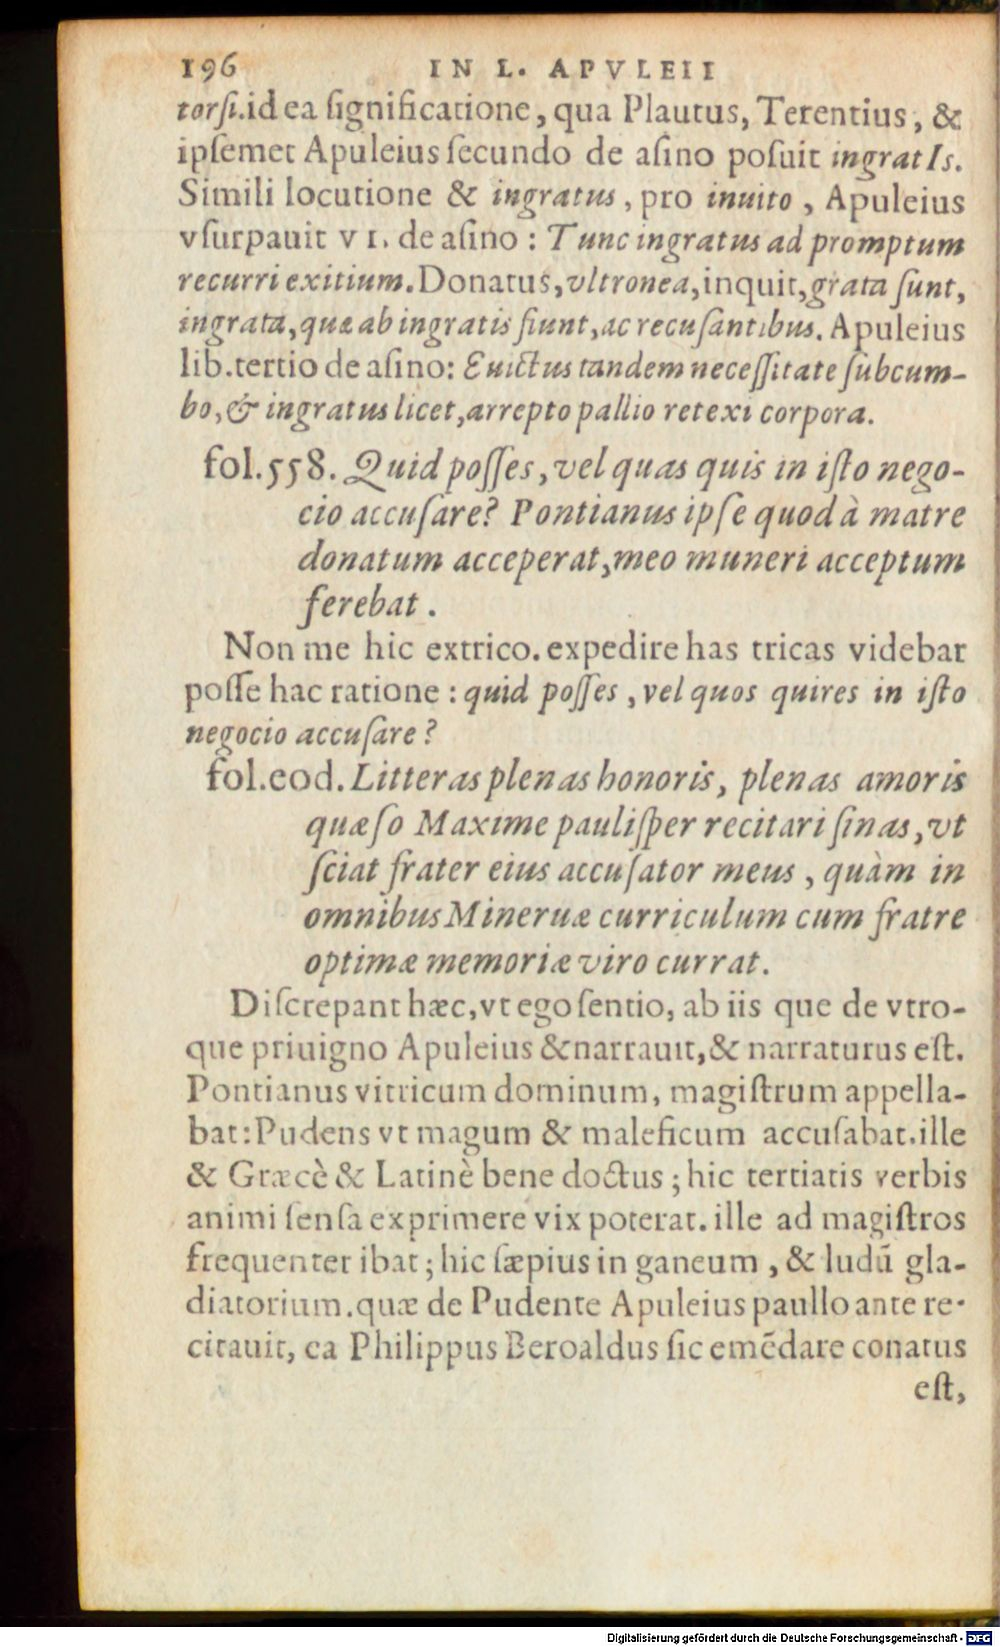 196 IN L. APVLEII
torſi.id ea ſignificatione, qua Plautus, Terentius, &
ipſemet Apuleius ſecundo de aſino poſuit ingratIs.
Simili locutione & ingratus, pro inuito, Apuleius
vſurpauit VI. de aſino: Tunc ingratus ad promptum
recurri exitium. Donatus, vltronea, inquit, grata ſunt,
ingrata, quæ ab ingratis fiunt, ac recuſantibus. Apuleius
lib. tertio de aſino: Euictus tandem neceſſitate ſubcum-
bo, & ingratus licet, arrepto pallio retexi corpora.
fol. 558. Quid poſſes, vel quas quis in iſto nego-
cio accuſare? Pontianus ipſe quod à matre
donatum acceperat, meo muneri acceptum
ferebat.
Non me hic extrico. expedire has tricas videbar
poſſe hac ratione: quid poſſes, vel quos quires in iſto
negocio accuſare?
fol. eod. Litteras plenas honoris, plenas amoris
quæſo Maxime pauliſper recitari ſinas, vt
ſciat frater eius accuſator meus, quàm in
omnibus Mineruæ curriculum cum fratre
optimæ memoriæ viro currat.
Diſcrepant hæc, vt ego ſentio, ab iis que de vtro-
que priuigno Apuleius & narrauit, & narraturus eſt.
Pontianus vitricum dominum, magiſtrum appella-
bat: Pudens vt magum & maleficum accuſabat. ille
& Græcè & Latinè bene doctus; hic tertiatis verbis
animi ſenſa exprimere vix poterat. ille ad magiſtros
frequenter ibat; hic ſæpius in ganeum, & ludū gla-
diatorium. quæ de Pudente Apuleius paullo ante re-
citauit, ea Philippus Beroaldus ſic emēdare conatus
eſt,
Digitalisierung gefördert durch die Deutsche Forschungsgemeinschaft - DFG